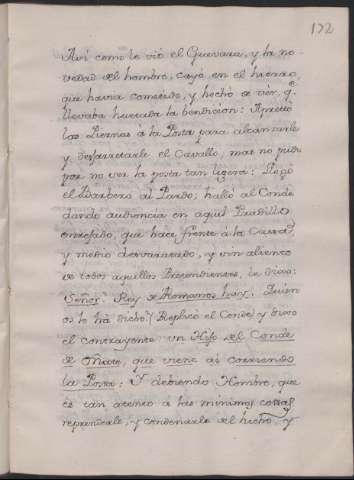 172
Así como le vió el Guevara, y la no-
vedad del hombre, cayó en el hierro
que havia cometido, y hechó de ver, q.e
llevaba hurtada la bendicion: Apretó
las Piernas á la Posta para alcanzarle
y desjarretarle el Cavallo, mas no pudo
por no ser la posta tan ligera: Llegó
el Barbero al Pardo: halló al Conde
dando audiencia en aquel Pradillo
enrejado, que hace frente á la Cassa,
y medio desvariado, y sin aliento
de todos aquellos Pretendientes, le dixo:
Señor: Rey de Romanos hay. Quien
os lo ha dicho? (Replicó el Conde) y dixo
el contrayente un Hijo del Conde
de Oñate, que viene así corriendo
la Posta: Y debiendo Hombre, que
es tan atento á las minimas cosas,
reprenderle, y condenarle el hecho, y